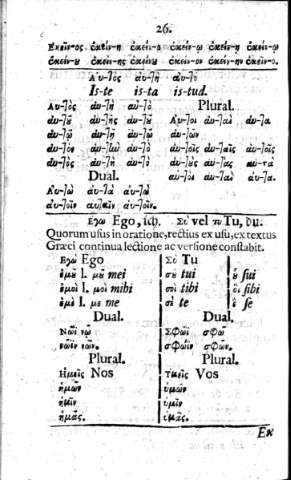 26.
Ἐκεῖν-ος ἐκείν-η ἐκείν-ῳ ἐκείν-ῃ ἐκείν-ῳ
ἐκείν-ου ἐκείν-ης ἐκείνου ἐκεῖν-ον ἐκείν-ην ἐκεῖν-ο.
Αὐ-τὸς αὐ-τὴ αὐ-τὸ
Is-te is-ta is-tud.
Αὐ-τὸς αὐ-τὴ αὐ-τὸ Plural.
αὐ-τοῦ αὐ-τῆς αὐ-τοῦ Αὐ-τοὶ αὐ-ταὶ αὐ-τὰ
αὐ-τῷ αὐ-τῇ αὐ-τῷ αὐ-τῶν
αὐ-τὸν αὐ-τὴν αὐ-τὸ αὐ-τοῖς αὐ-ταῖς αὐ-τοῖς
αὐ-τὸς αὐ-τὴ αὐ-τὸ αὐ-τοὺς αὐ-τὰς αὐ-τὰ
Dual. αὐ-τοὶ αὐ-ταὶ αὐ-τὰ.
Αὐ-τὼ αὐ-τὰ αὐ-τὼ
αὐ-τοῖν αὐ-ταῖν αὐ-τοῖν.
Ἐγὼ Ego, ich. Σὺ vel τὺ Tu, du.
Quorum usus in oratione, rectius ex usu, ex textus
Græci continua lectione ac versione constabit.
Ἐγὼ Ego Σὺ Tu
ἐμοῦ l. μοῦ mei σοῦ tui οὗ sui
ἐμοὶ l. μοὶ mihi σοὶ tibi οἷ sibi
ἐμὲ l. με me σὲ te ἓ se
Dual. Dual.
Νῶϊ νῷ Σφῶϊ σφὼ
νῶϊν νῷν. σφῶϊν σφῷν.
Plural. Plural.
Ἡμεῖς Nos Ὑμεῖς Vos
ἡμῶν ὑμῶν
ἡμῖν ὑμῖν
ἡμᾶς. ὑμᾶς.
Ex